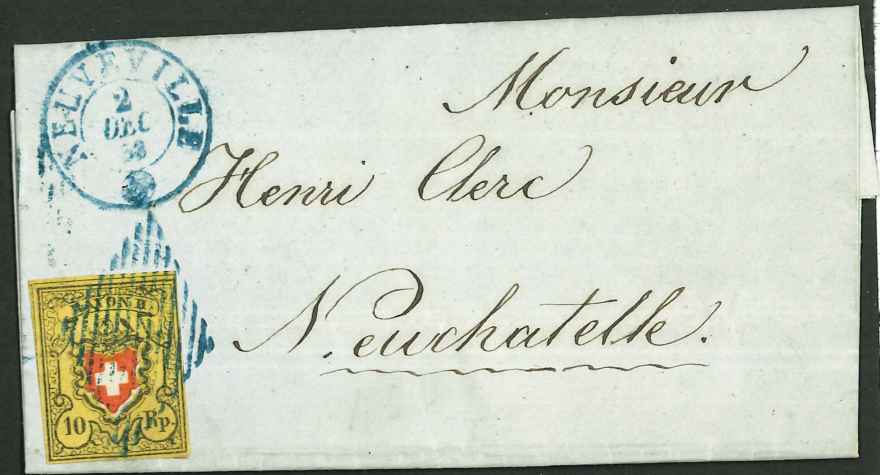 NEUVEVILLE
2
DEC
Monsieur
Henri Clerc
Neuchatelle.
RAYON II
10 Rp.